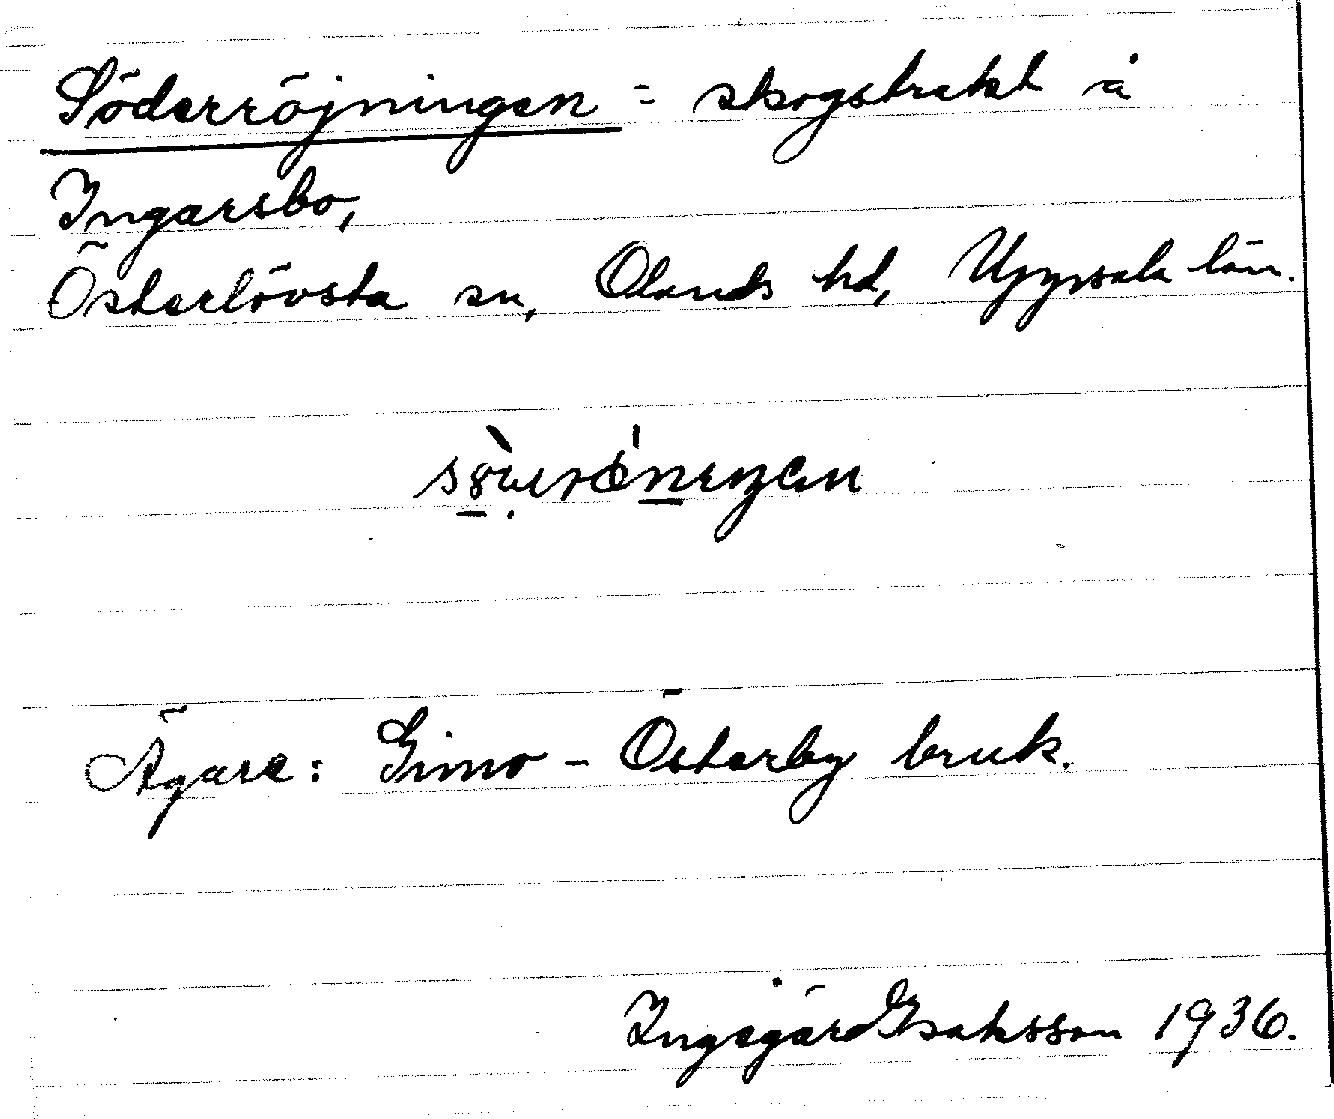 Söderröjningen = skogstrakt å
Ingarsbo,
Österlövsta sn, Olands hd, Uppsala län.
Ägare: Gimo - Österby bruk.
Ingegärd Isaksson 1936.